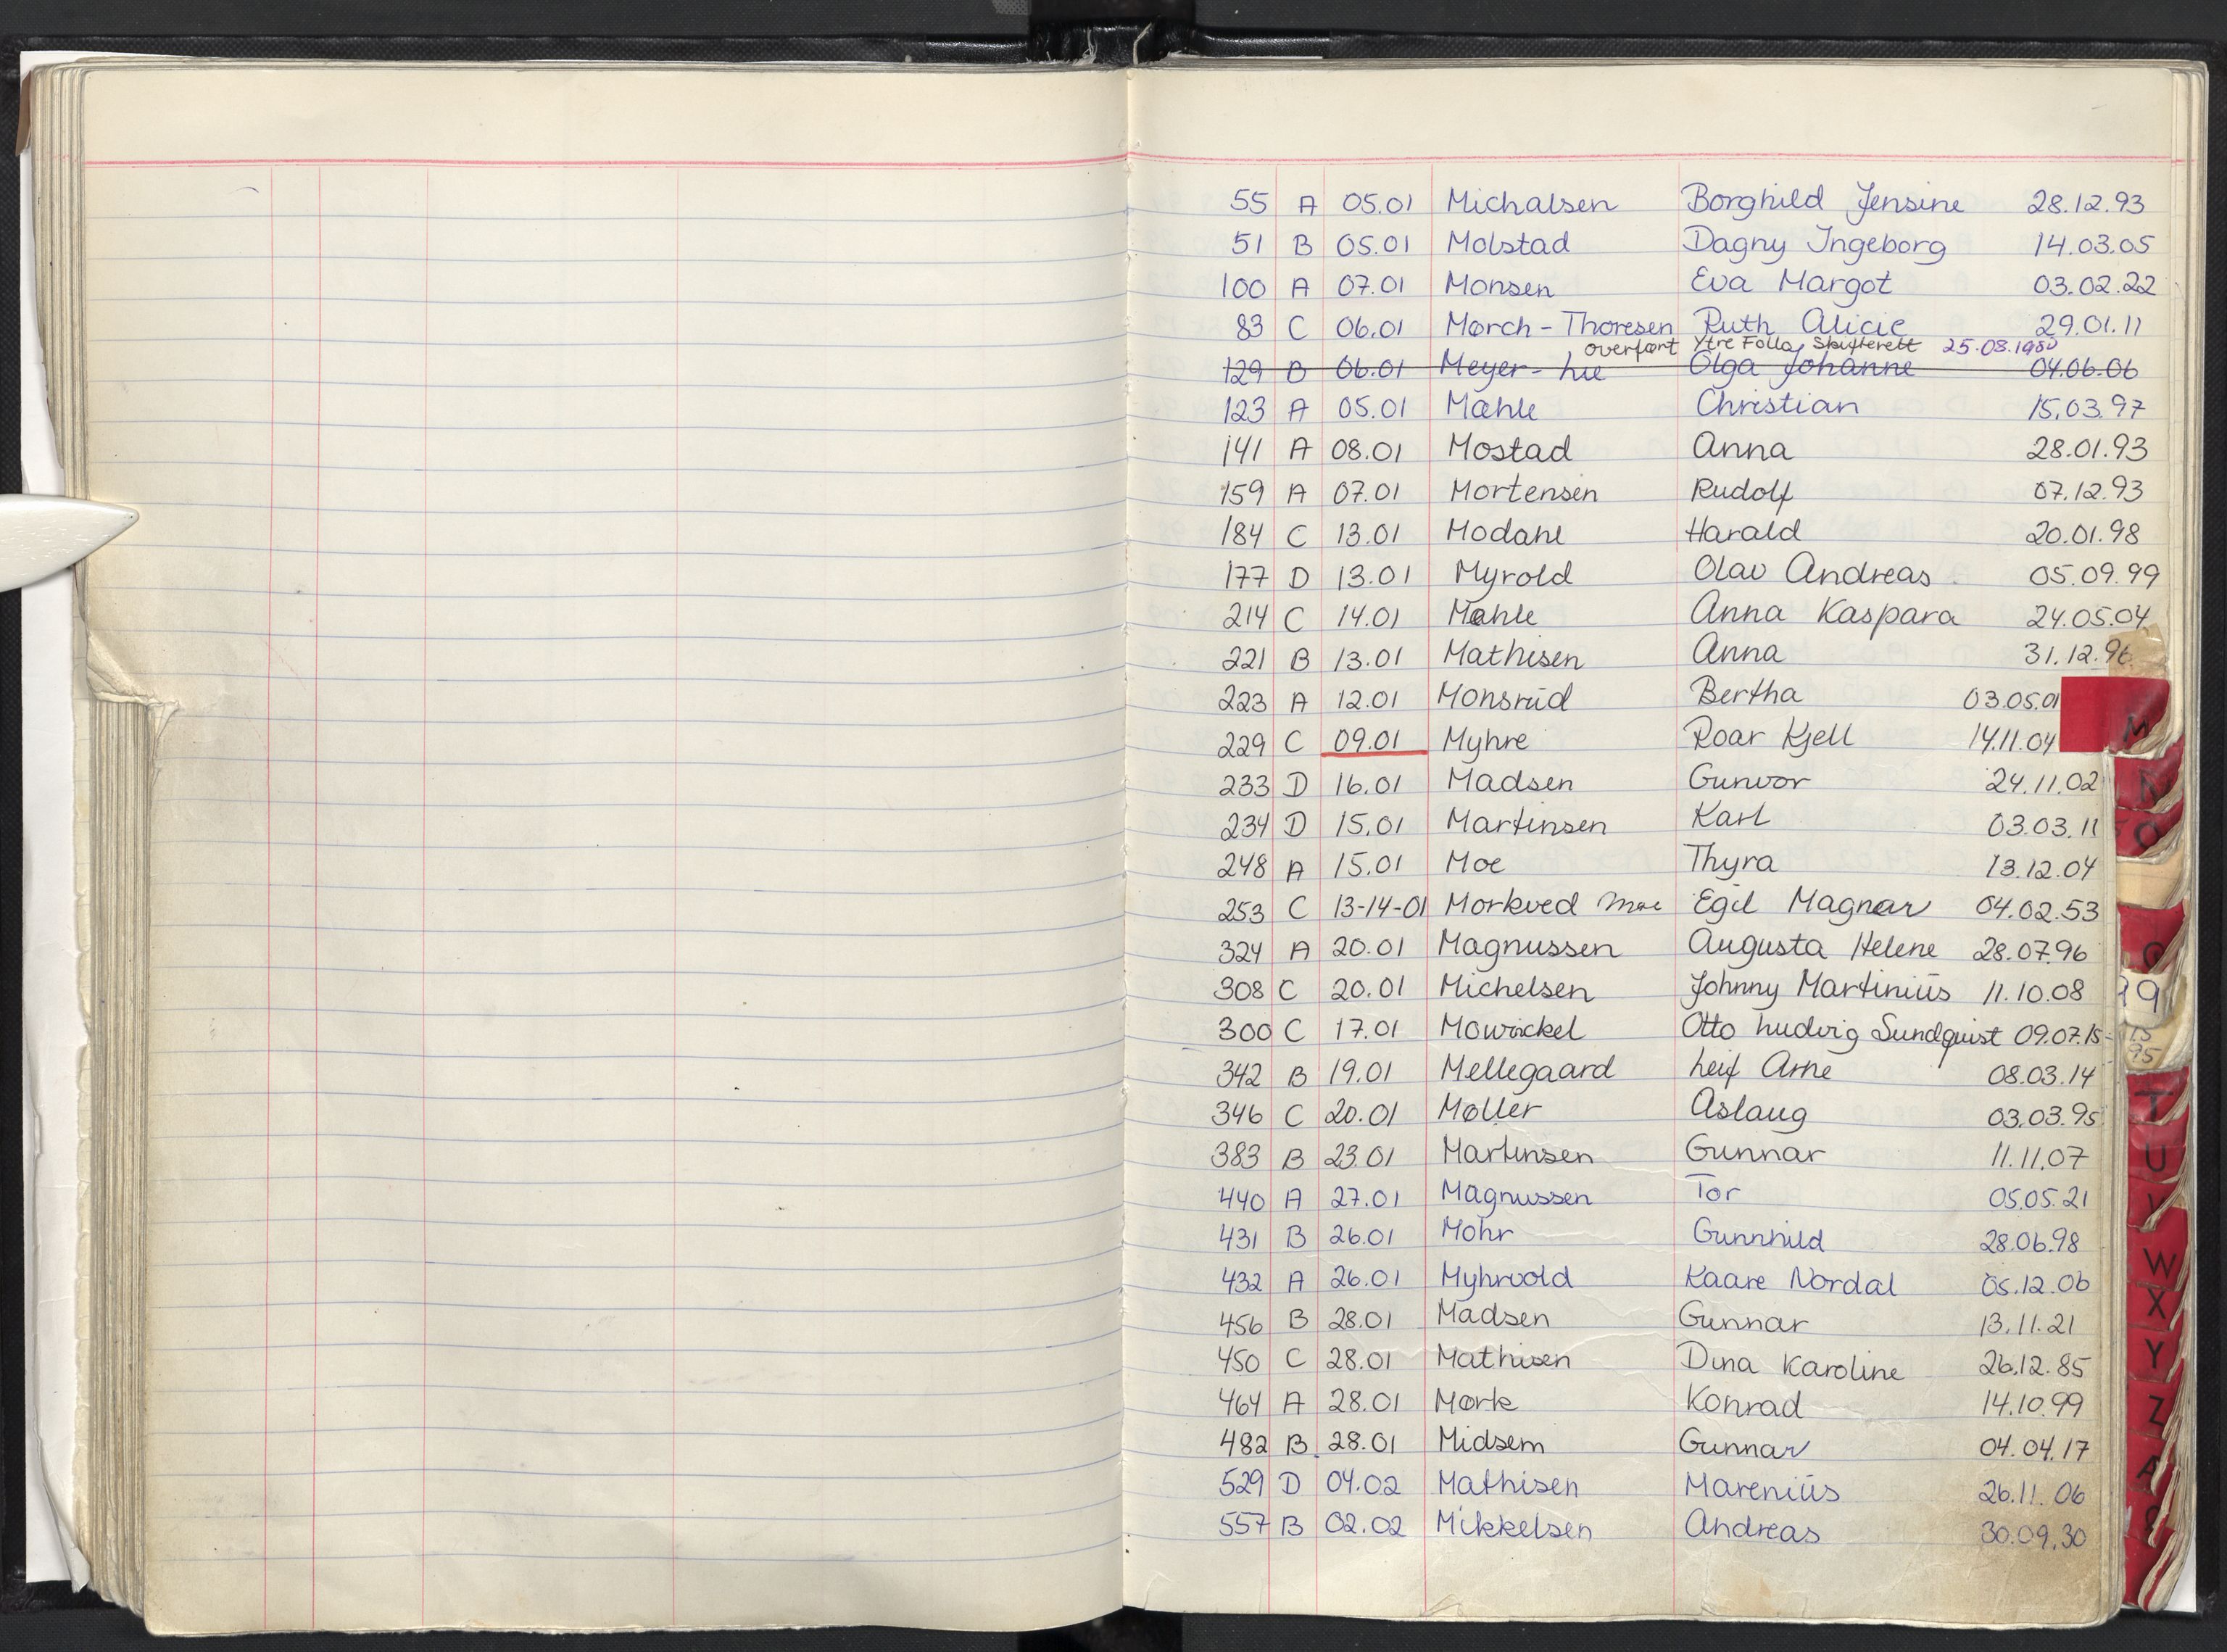 55 A 05.01 Michalsen Borghild Jensine 28.12.93
51 B 05.01 Molstad Dagny Ingeborg 14.03.05
100 A 07.01 Monsen Eva Margot 03.02.22
83 C 06.01 Mørch-Thoresen Ruth Alicie 29.01.11
overført Ytre Follo, Skifterett 25.08.1980
129 B 06.01 Meyer-Lie Olga Johanne 04.06.06
123 A 05.01 Mæhle Christian 15.03.97
141 A 08.01 Mostad Anna 28.01.93
159 A 07.01 Mortensen Rudolf 07.12.93
184 C 13.01 Modahl Harald 20.01.98
177 D 13.01 Myrold Olav Andreas 05.09.99
214 C 14.01 Mæhle Anna Kaspara 24.05.04
221 B 13.01 Mathisen Anna 31.12.96
223 A 12.01 Monsrud Bertha 03.05.01
M
229 C 09.01 Myhre Roar Kjell 14.11.04
233 D 16.01 Madsen Gunvor 24.11.02
N
234 D 15.01 Martinsen Karl 03.03.11
O
248 A 15.01 Moe Thyra 13.12.04
253 C 13-14-01 Morkved Moe Egil Magnar 04.02.53
324 A 20.01 Magnussen Augusta Helene 28.07.96
308 C 20.01 Michelsen Johnny Martinius 11.10.08
300 C 17.01 Mowinckel Otto Ludvig Sundquist 09.07.15
342 B 19.01 Mellegaard Leif Arne 08.03.14
346 C 20.01 Møller Aslaug 03.03.95
T
383 B 23.01 Martinsen Gunnar 11.11.07
U
440 A 27.01 Magnussen Tor 05.05.21
V
431 B 26.01 Mohr Gunnhild 28.06.98
432 A 26.01 Myhrvold Kaare Nordal 05.12.06
W
456 B 28.01 Madsen Gunnar 13.11.21
X
450 C 28.01 Mathisen Dina Karoline 26.12.85
Y
464 A 28.01 Mørk Konrad 14.10.99
Z
482 B 28.01 Midsem Gunnar 04.04.17
529 D 04.02 Mathisen Marenius 26.11.06
557 B 02.02 Mikkelsen Andreas 30.09.30